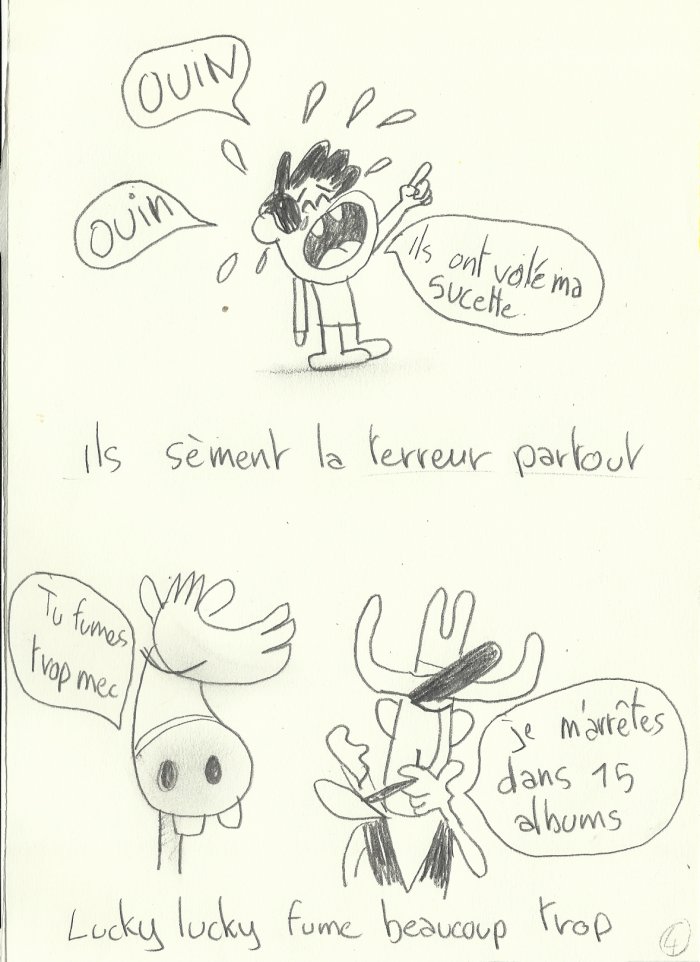 OUIN
OUIN
ils ont volé ma
sucette.
ils sèment la terreur partout
Tu fumes
trop mec
je m'arrêtes
dans 15
albums
Lucky lucky fume beaucoup trop
4